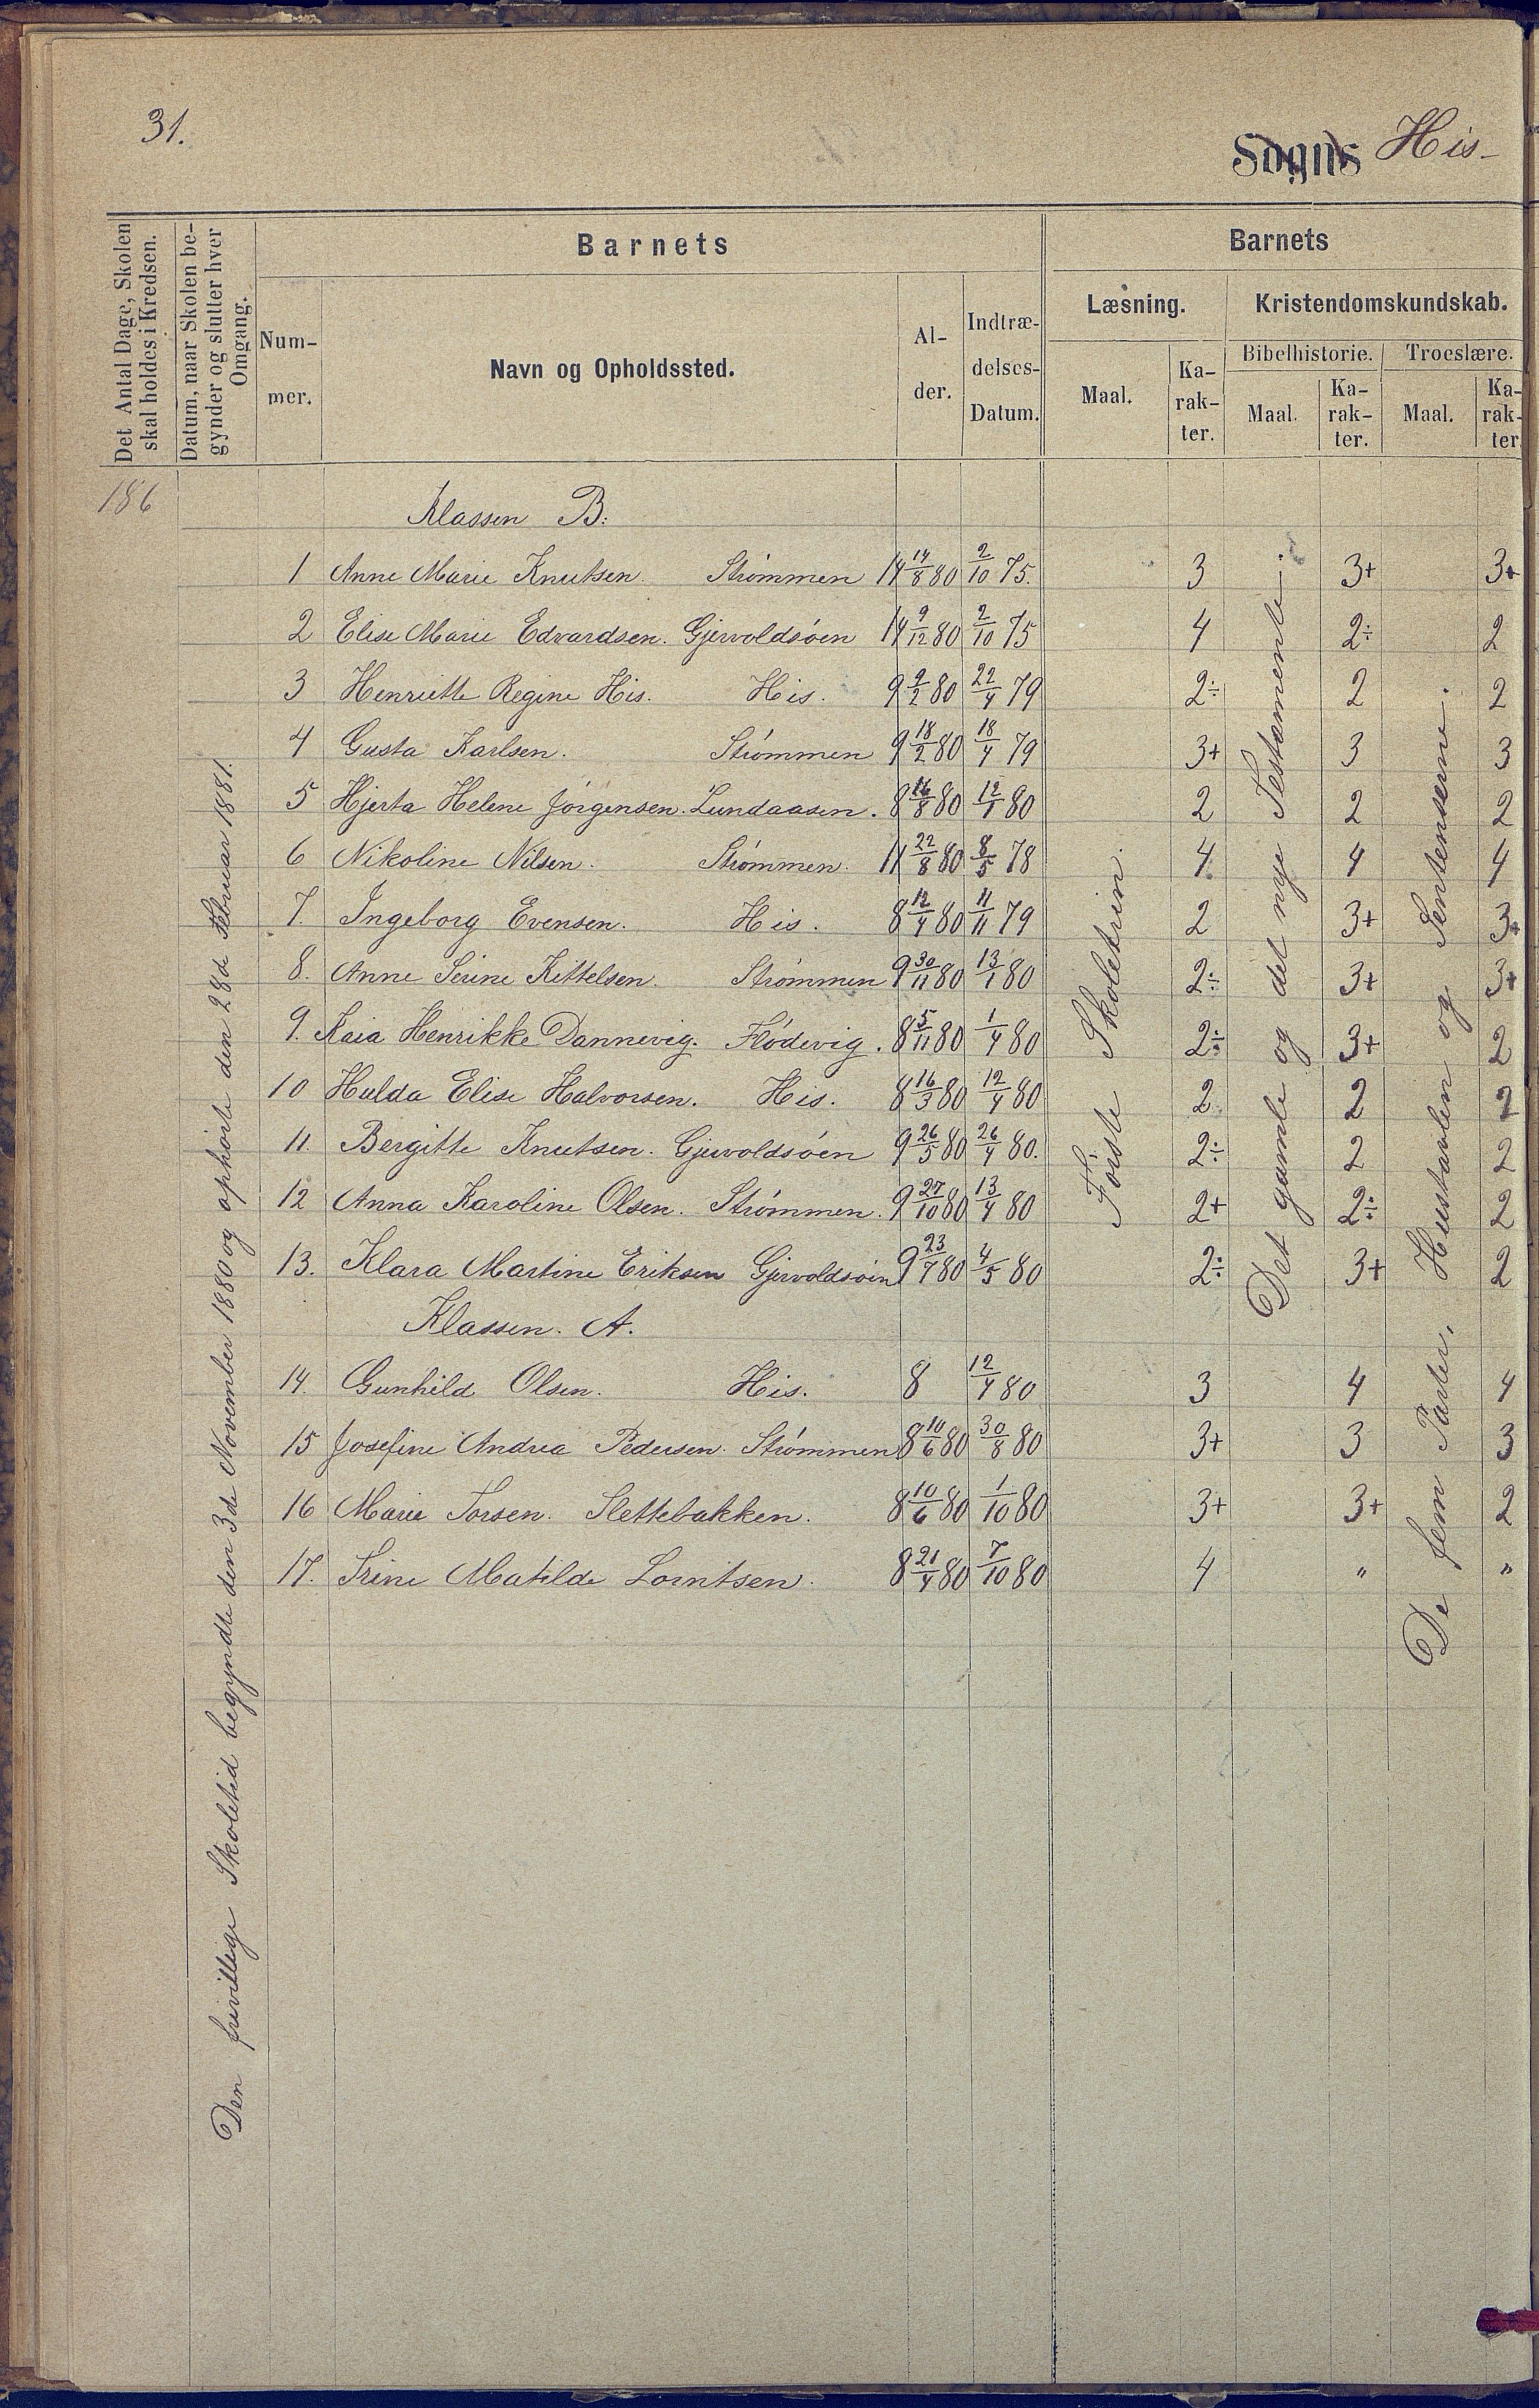 31.
Sogns His-
Det Antal Dage, Skolen
skal holdes i Kredsen.
Datum, naar Skolen be-
gynder og slutter hver
Omgang.
Barnets
Num-
mer.
Navn og Opholdssted.
Al-
der.
Indtræ-
delses-
Datum.
Barnets
Læsning.
Maal.
Ka-
rak-
ter.
Kristendomskundskab.
Bibelhistorie.
Maal.
Ka-
rak-
ter.
Troeslære.
Maal.
Ka-
rak-
ter.
186
Den frivillige Skoletid begyndte den 3de November 1880 og ophørte den 28de Februar 1881.
Klassen B:
1 Anne Marie Knutsen. Strømmen 14 14/8 80 2/10 75. 3 3+ 3+
2 Elise Marie Edvardsen. Gjervoldsøen 14 9/12 80 2/10 75 4 2÷ 2
3 Henriette Regine His. His. 9 9/2 80 22/4 79 2÷ 2 2
4 Gusta Karlsen. Strømmen 9 18/2 80 18/4 79 3+ 3 3
5 Hjerta Helene Jørgensen. Lundaasen. 8 16/8 80 12/1 80 2 2 2
6 Nikoline Nilsen. Strømmen. 11 22/8 80 8/5 78 4 4 4
7. Ingeborg Evensen. His. 8 12/4 80 11/11 79 2 3+ 3+
8. Anne Serine Kittelsen. Strømmen 9 30/11 80 13/1 80 2÷ 3+ 3+
9. Kaia Henrikke Dannevig. Flødevig. 8 5/11 80 1/4 80 2÷ 3+ 2
10 Hulda Elise Halvorsen. His. 8 16/3 80 12/4 80 2 2 2
11. Bergitte Knutsen. Gjervoldsøen 9 26/5 80 26/4 80. 2÷ 2 2
12 Anna Karoline Olsen. Strømmen. 9 27/10 80 13/4 80 2+ 2÷ 2
13. Klara Martine Eriksen Gjervoldsøen 9 23/7 80 4/5 80 2÷ 3+ 2
Klassen. A.
14. Gunhild Olsen. His. 8 12/4 80 3 4 4
15 Josefine Andrea Pedersen. Strømmen 8 10/6 80 30/8 80 3+ 3 3
16 Marie Torsen. Slettebakken. 8 10/6 80 1/10 80 3+ 3+ 2
17. Trine Matilde Lorntsen. 8 21/4 80 7/10 80 4 " "
Første Skoletrin.
Det gamle og det nye Testamente.
De fem Parter, Hustavlen og Sentenserne.